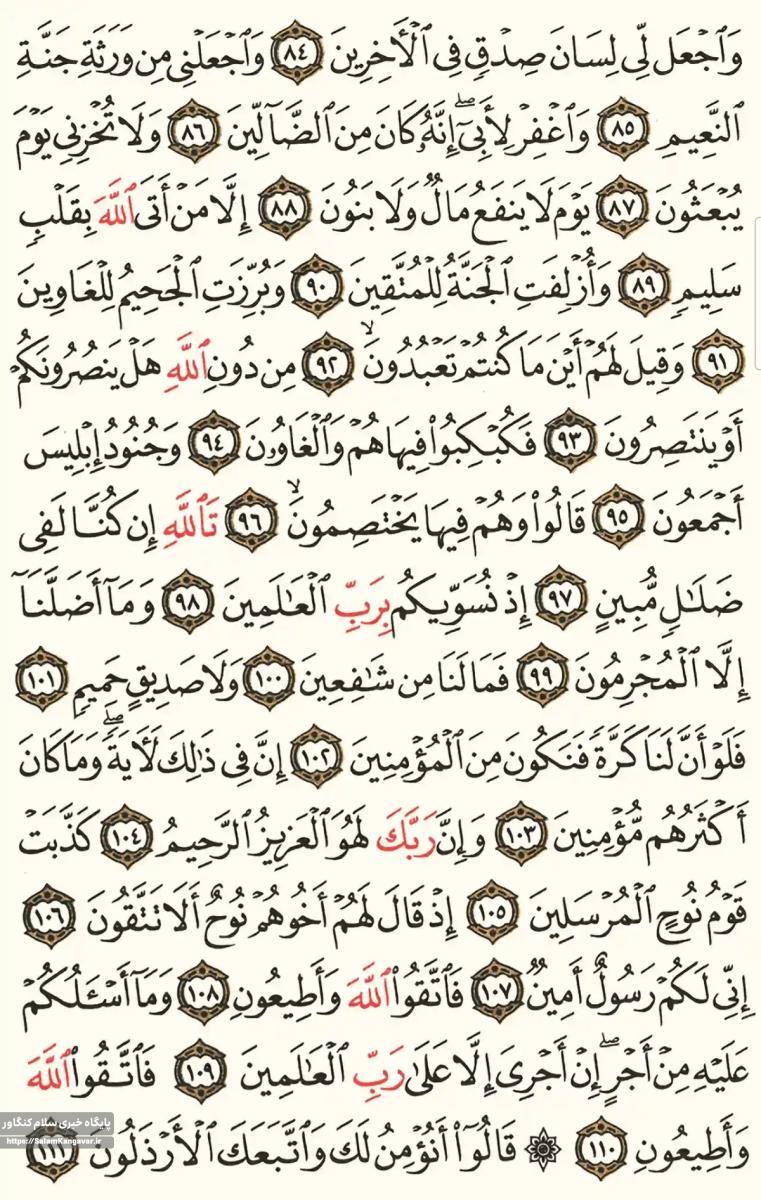 وَٱجۡعَل لِّي لِسَانَ صِدۡقٖ فِي ٱلۡأٓخِرِينَ ٨٤ وَٱجۡعَلۡنِي مِن وَرَثَةِ جَنَّةِ
ٱلنَّعِيمِ ٨٥ وَٱغۡفِرۡ لِأَبِيٓ إِنَّهُۥ كَانَ مِنَ ٱلضَّآلِّينَ ٨٦ وَلَا تُخۡزِنِي يَوۡمَ
يُبۡعَثُونَ ٨٧ يَوۡمَ لَا يَنفَعُ مَالٞ وَلَا بَنُونَ ٨٨ إِلَّا مَنۡ أَتَى ٱللَّهَ بِقَلۡبٖ
سَلِيمٖ ٨٩ وَأُزۡلِفَتِ ٱلۡجَنَّةُ لِلۡمُتَّقِينَ ٩٠ وَبُرِّزَتِ ٱلۡجَحِيمُ لِلۡغَاوِينَ
٩١ وَقِيلَ لَهُمۡ أَيۡنَ مَا كُنتُمۡ تَعۡبُدُونَ ٩٢ مِن دُونِ ٱللَّهِ هَلۡ يَنصُرُونَكُمۡ
أَوۡ يَنتَصِرُونَ ٩٣ فَكُبۡكِبُواْ فِيهَا هُمۡ وَٱلۡغَاوُۥنَ ٩٤ وَجُنُودُ إِبۡلِيسَ
أَجۡمَعُونَ ٩٥ قَالُواْ وَهُمۡ فِيهَا يَخۡتَصِمُونَ ٩٦ تَٱللَّهِ إِن كُنَّا لَفِي
ضَلَٰلٖ مُّبِينٍ ٩٧ إِذۡ نُسَوِّيكُم بِرَبِّ ٱلۡعَٰلَمِينَ ٩٨ وَمَآ أَضَلَّنَآ
إِلَّا ٱلۡمُجۡرِمُونَ ٩٩ فَمَا لَنَا مِن شَٰفِعِينَ ١٠٠ وَلَا صَدِيقٍ حَمِيمٖ ١٠١
فَلَوۡ أَنَّ لَنَا كَرَّةٗ فَنَكُونَ مِنَ ٱلۡمُؤۡمِنِينَ ١٠٢ إِنَّ فِي ذَٰلِكَ لَأٓيَةٗۖ وَمَا كَانَ
أَكۡثَرُهُم مُّؤۡمِنِينَ ١٠٣ وَإِنَّ رَبَّكَ لَهُوَ ٱلۡعَزِيزُ ٱلرَّحِيمُ ١٠٤ كَذَّبَتۡ
قَوۡمُ نُوحٍ ٱلۡمُرۡسَلِينَ ١٠٥ إِذۡ قَالَ لَهُمۡ أَخُوهُمۡ نُوحٌ أَلَا تَتَّقُونَ ١٠٦
إِنِّي لَكُمۡ رَسُولٌ أَمِينٞ ١٠٧ فَٱتَّقُواْ ٱللَّهَ وَأَطِيعُونِ ١٠٨ وَمَآ أَسۡـَٔلُكُمۡ
عَلَيۡهِ مِنۡ أَجۡرٍۖ إِنۡ أَجۡرِيَ إِلَّا عَلَىٰ رَبِّ ٱلۡعَٰلَمِينَ ١٠٩ فَٱتَّقُواْ ٱللَّهَ
وَأَطِيعُونِ ١١٠ ۞ قَالُوٓاْ أَنُؤۡمِنُ لَكَ وَٱتَّبَعَكَ ٱلۡأَرۡذَلُونَ ١١١
پایگاه خبری سلام کنگاور
https://SalamKangavar.ir